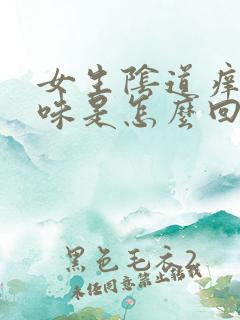 女生陰道癢
味是怎麼回
黑色毛衣2
未經同意禁止轉載